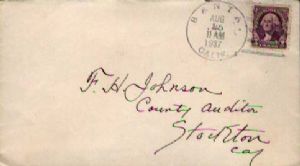 BANTA,
AUG
11 AM
1937
CALIF.
F. H. Johnson
County Auditor
Stockton
Cal